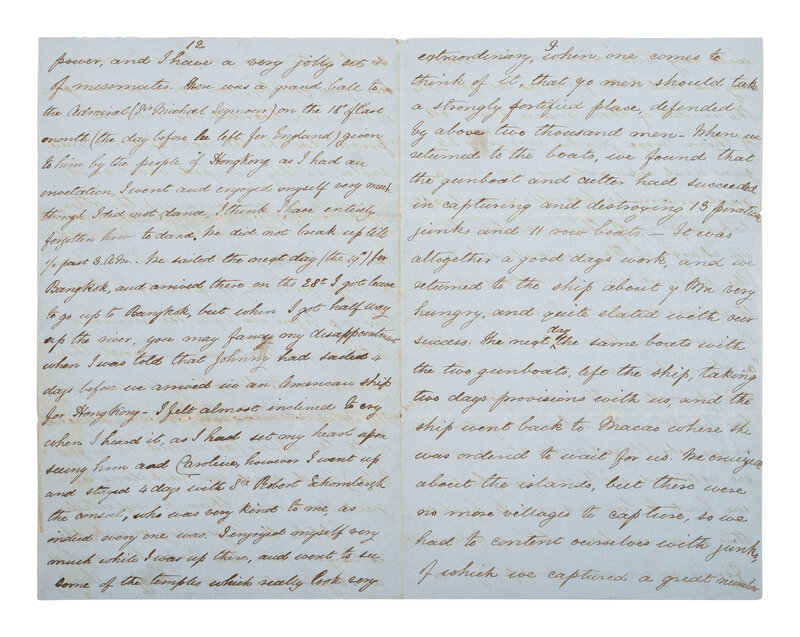 12
power, and I have a very jolly set
of messmates. There was a grand ball to
the Admiral (Sir Michael Seymour) on the 18th of last
month (the day before he left for England) given
to him by the people of Hongkong as I had an
invetation I went and enjoyed myself very much
though I did not dance, I think I have entirely
forgotten how to dance. We did not break up till
½ past 3. A.M. We sailed the next day (the 19th) for
Bangkok, and arrived there on the 28th I got leave
to go up to Bangkok, but when I got half way
up the river, you may fancy my disappointment
when I was told that Johnny had sailed 4
days before we arrived in an American ship
for Hongkong - I felt almost inclined to cry
when I heard it, as I had set my heart upon
seeing him and Caroline, however I went up
and stayed 4 days with Sir Robert Schombergh
the consul, who was very kind to me, as
indeed every one was. I enjoyed myself very
much while I was up there, and went to see
some of the temples which really look very
9.
extraordinary, when one comes to
think of it, that 70 men should take
a strongly fortified place, defended
by above two thousand men - When we
returned to the boats, we found that
the gunboat and cutter had succeeded
in capturing and destroying 13 piratical
junks and 11 row boats. - It was
altogether a good days work, and we
returned to the ship about 7 PM very
hungry, and quite elated with our
success. The next day the same boats with
the two gunboats, left the ship, taking
two days provisions with us, and the
ship went back to Macao where she
was ordered to wait for us. We cruized
about the islands, but there were
no more villages to capture, so we
had to content ourselves with junks,
of which we captured a great number